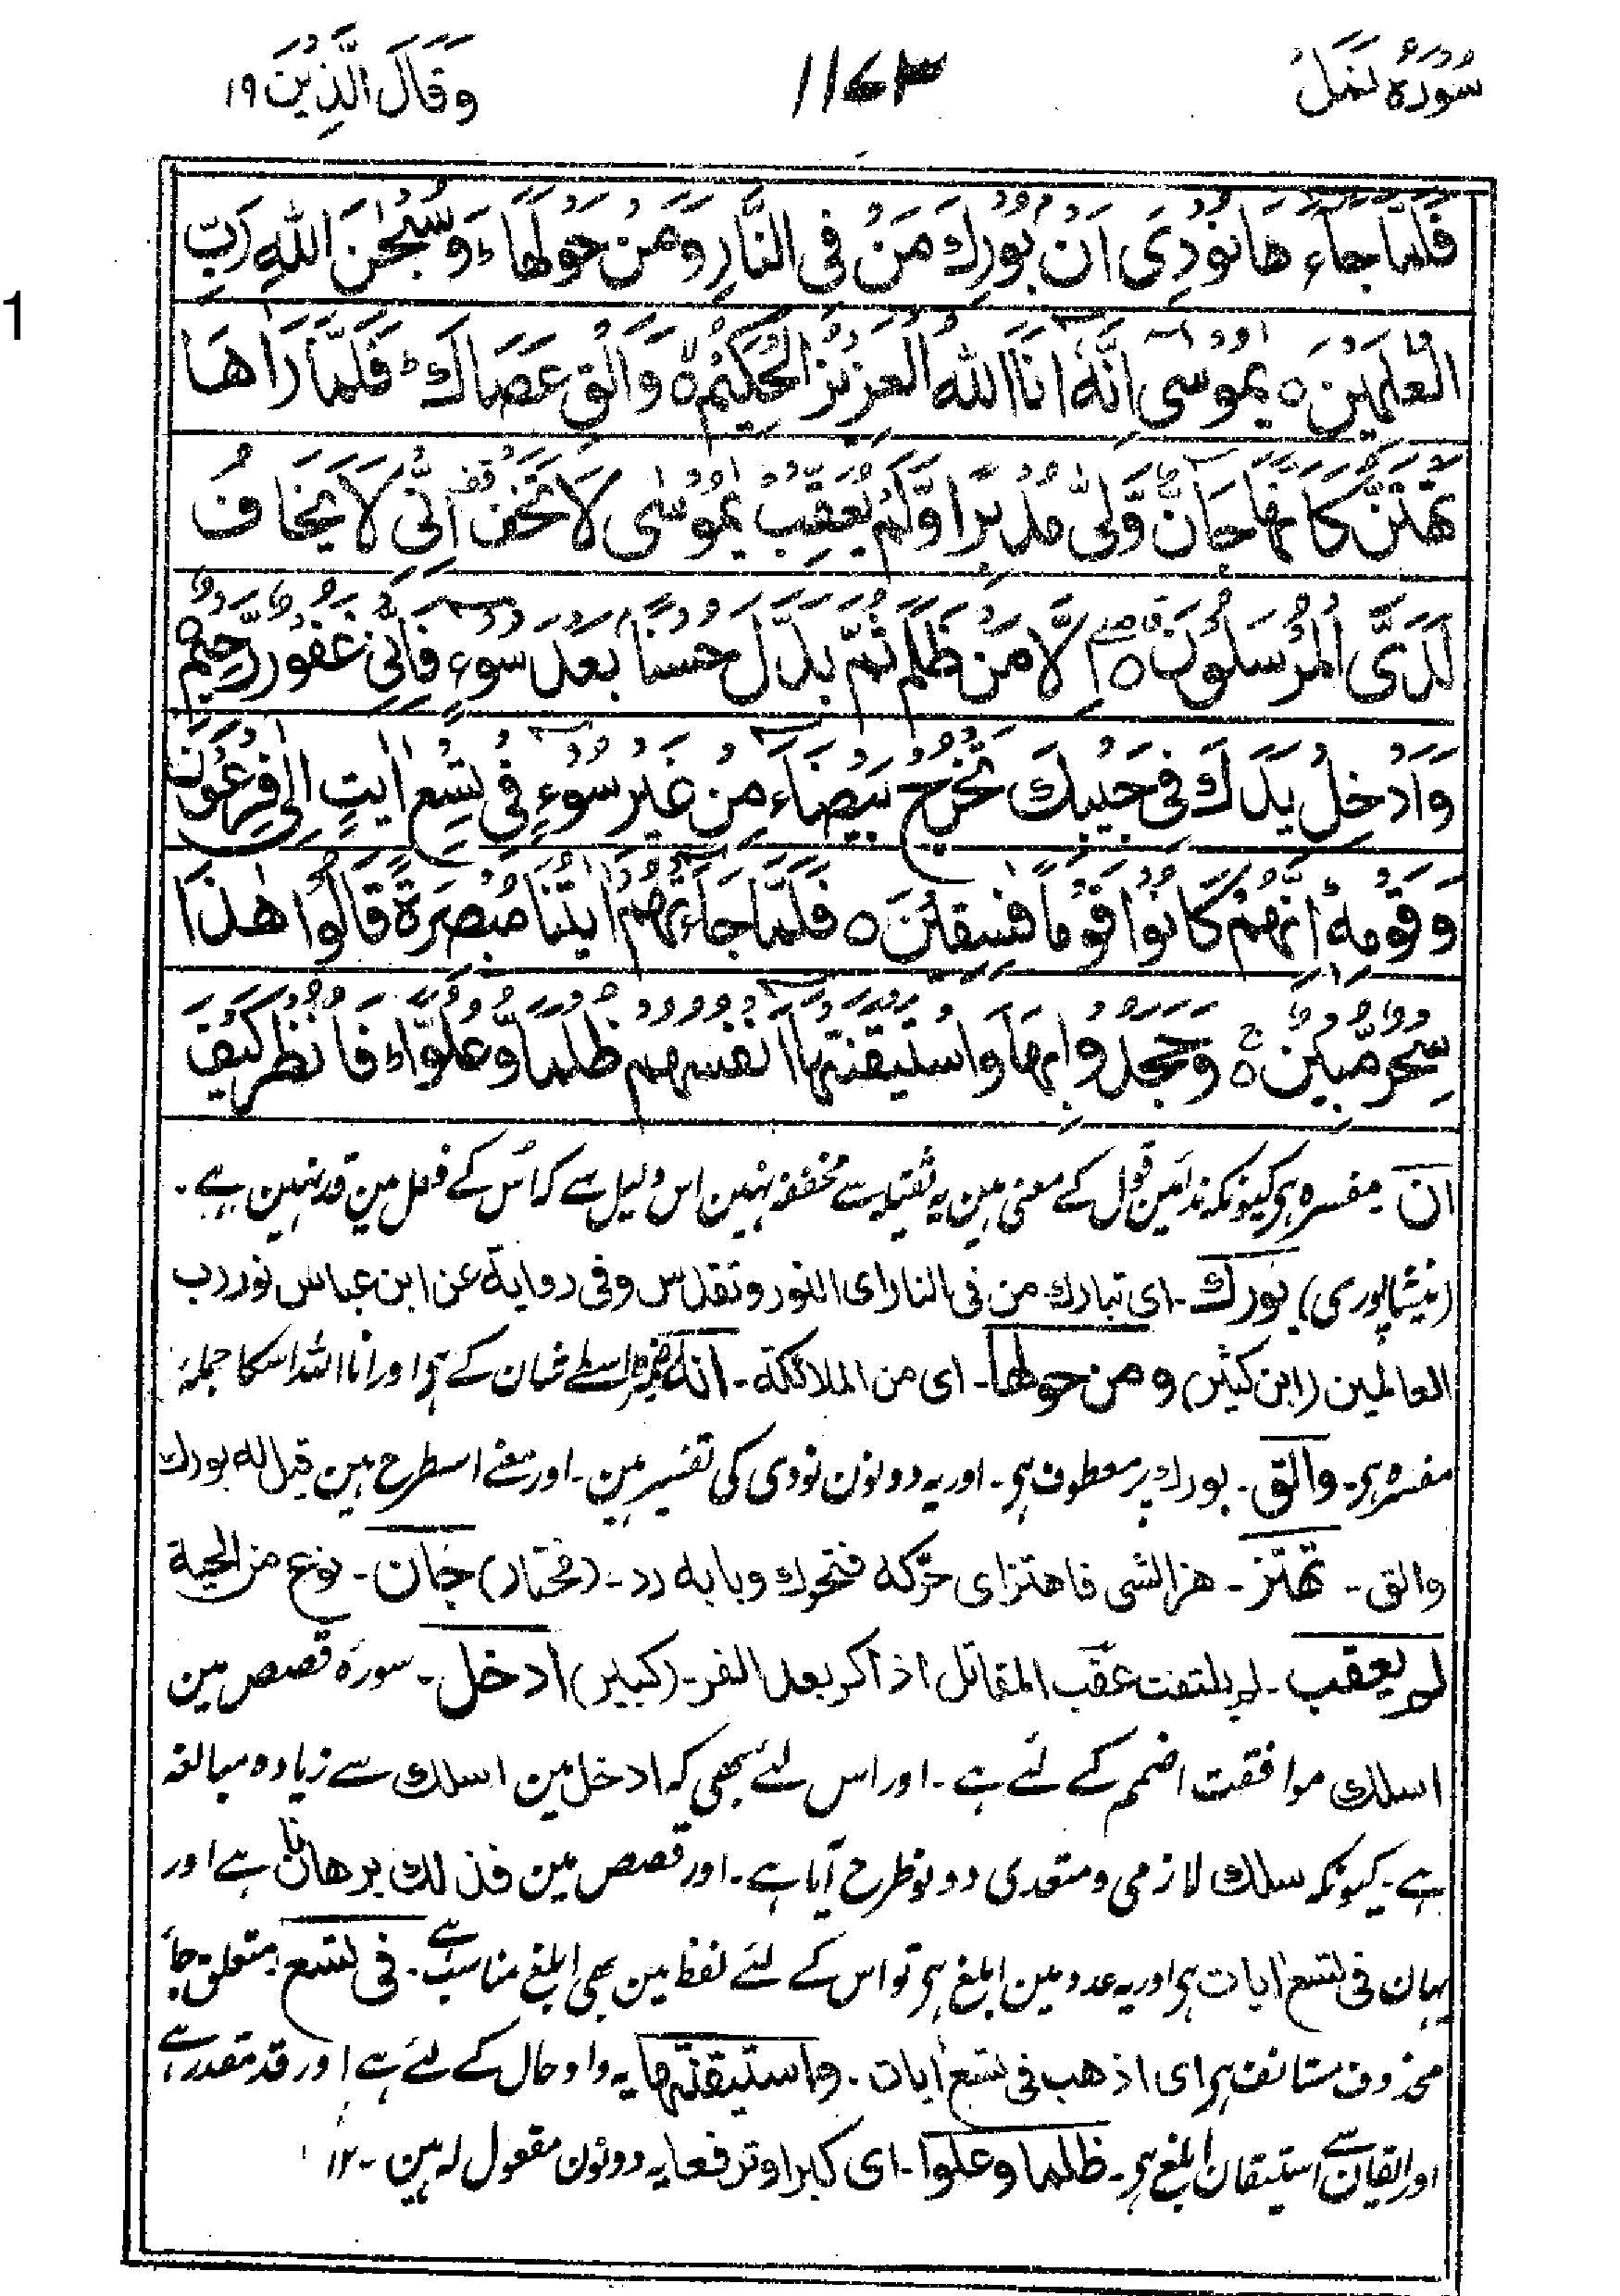 سُوْرَۃُ نَمْل
۱۱۷۳
وَقَالَ الَّذِيْنَ ۱۹
1
فَلَمَّا جَآءَهَا نُوْدِىَ اَنْۢ بُوْرِكَ مَنْ فِى النَّارِ وَمَنْ حَوْلَهَا ؕ وَسُبْحٰنَ اللّٰهِ رَبِّ
الْعٰلَمِيْنَ ○ يٰمُوْسٰٓى اِنَّهٗٓ اَنَا اللّٰهُ الْعَزِيْزُ الْحَكِيْمُ ○ۙ وَاَلْقِ عَصَاكَ ؕ فَلَمَّا رَاٰهَا
تَهْتَزُّ كَاَنَّهَا جَآنٌّ وَّلّٰى مُدْبِرًا وَّلَمْ يُعَقِّبْ ؕ يٰمُوْسٰى لَا تَخَفْ اِنِّىْ لَا يَخَافُ
لَدَىَّ الْمُرْسَلُوْنَ ○ اِلَّا مَنْ ظَلَمَ ثُمَّ بَدَّلَ حُسْنًۢا بَعْدَ سُوْٓءٍ فَاِنِّىْ غَفُوْرٌ رَّحِيْمٌ
وَاَدْخِلْ يَدَكَ فِىْ جَيْبِكَ تَخْرُجْ بَيْضَآءَ مِنْ غَيْرِ سُوْٓءٍ فِىْ تِسْعِ اٰيٰتٍ اِلٰى فِرْعَوْنَ
وَقَوْمِهٖ ؕ اِنَّهُمْ كَانُوْا قَوْمًا فٰسِقِيْنَ ○ فَلَمَّا جَآءَتْهُمْ اٰيٰتُنَا مُبْصِرَةً قَالُوْا هٰذَا
سِحْرٌ مُّبِيْنٌ ○ۚ وَجَحَدُوْا بِهَا وَاسْتَيْقَنَتْهَآ اَنْفُسُهُمْ ظُلْمًا وَّعُلُوًّا ؕ فَانْظُرْ كَيْفَ
ان ۔ مفسرہ ہی کیونکہ ندا مین قول کے معنی ہین یہ ثقیلہ سے مخففہ نہین اس دلیل سے کہ اُس کے فعل مین قد نہین ہے ۔
(نیشاپوری) بورك ۔ اى تبارك من فى النار اى النور وتقدس وفى رواية عن ابن عباس نور رب
العالمين (ابن كثير) ومن حولها ۔ اى من الملائكة ۔ انه ضمیر واسطے شان کے ہی اور انا اللہ اسکا جملۂ
مفسرہ ہی ۔ والق ۔ بورك پر معطوف ہی ۔ اور یہ دونون نودی کی تفسیر ہین ۔ اور معنے اسطرح ہین قيل له بورك
والق ۔ تهتز ۔ هز الشى فاهتز اى حرّكه فتحرك وبابه رد ۔ (مختار) جان ۔ نوع من الحية
لم يعقب ۔ لم يلتفت عقّب المقاتل اذا كر بعد الفر ۔ (كبير) ادخل ۔ سورۂ قصص مین
اسلك موافقت اضمم کے لئے ہے ۔ اور اس لئے بھی کہ ادخل مین اسلك سے زیادہ مبالغہ
ہے ۔ کیونکہ سلك لازمی و متعدی دونو طرح آیا ہے ۔ اور قصص مین فذلك برهانان ہے اور
یہان فى تسع ايات ہی اور یہ عدد مین ابلغ ہی تو اس کے لئے لفظ مین بھی ابلغ مناسب ہے ۔ فى تسع ۔ متعلق بجا
محذوف مستانف ہی اى اذهب فى تسع ايات ۔ واستيقنتها یہ واو حال کے لئے ہے اور قد مقدر ہے
اور ایقان سے استیقان ابلغ ہی ۔ ظلما وعلوا ۔ اى كبرا وترفعا یہ دونون مفعول لہ ہین ۔ ۱۲